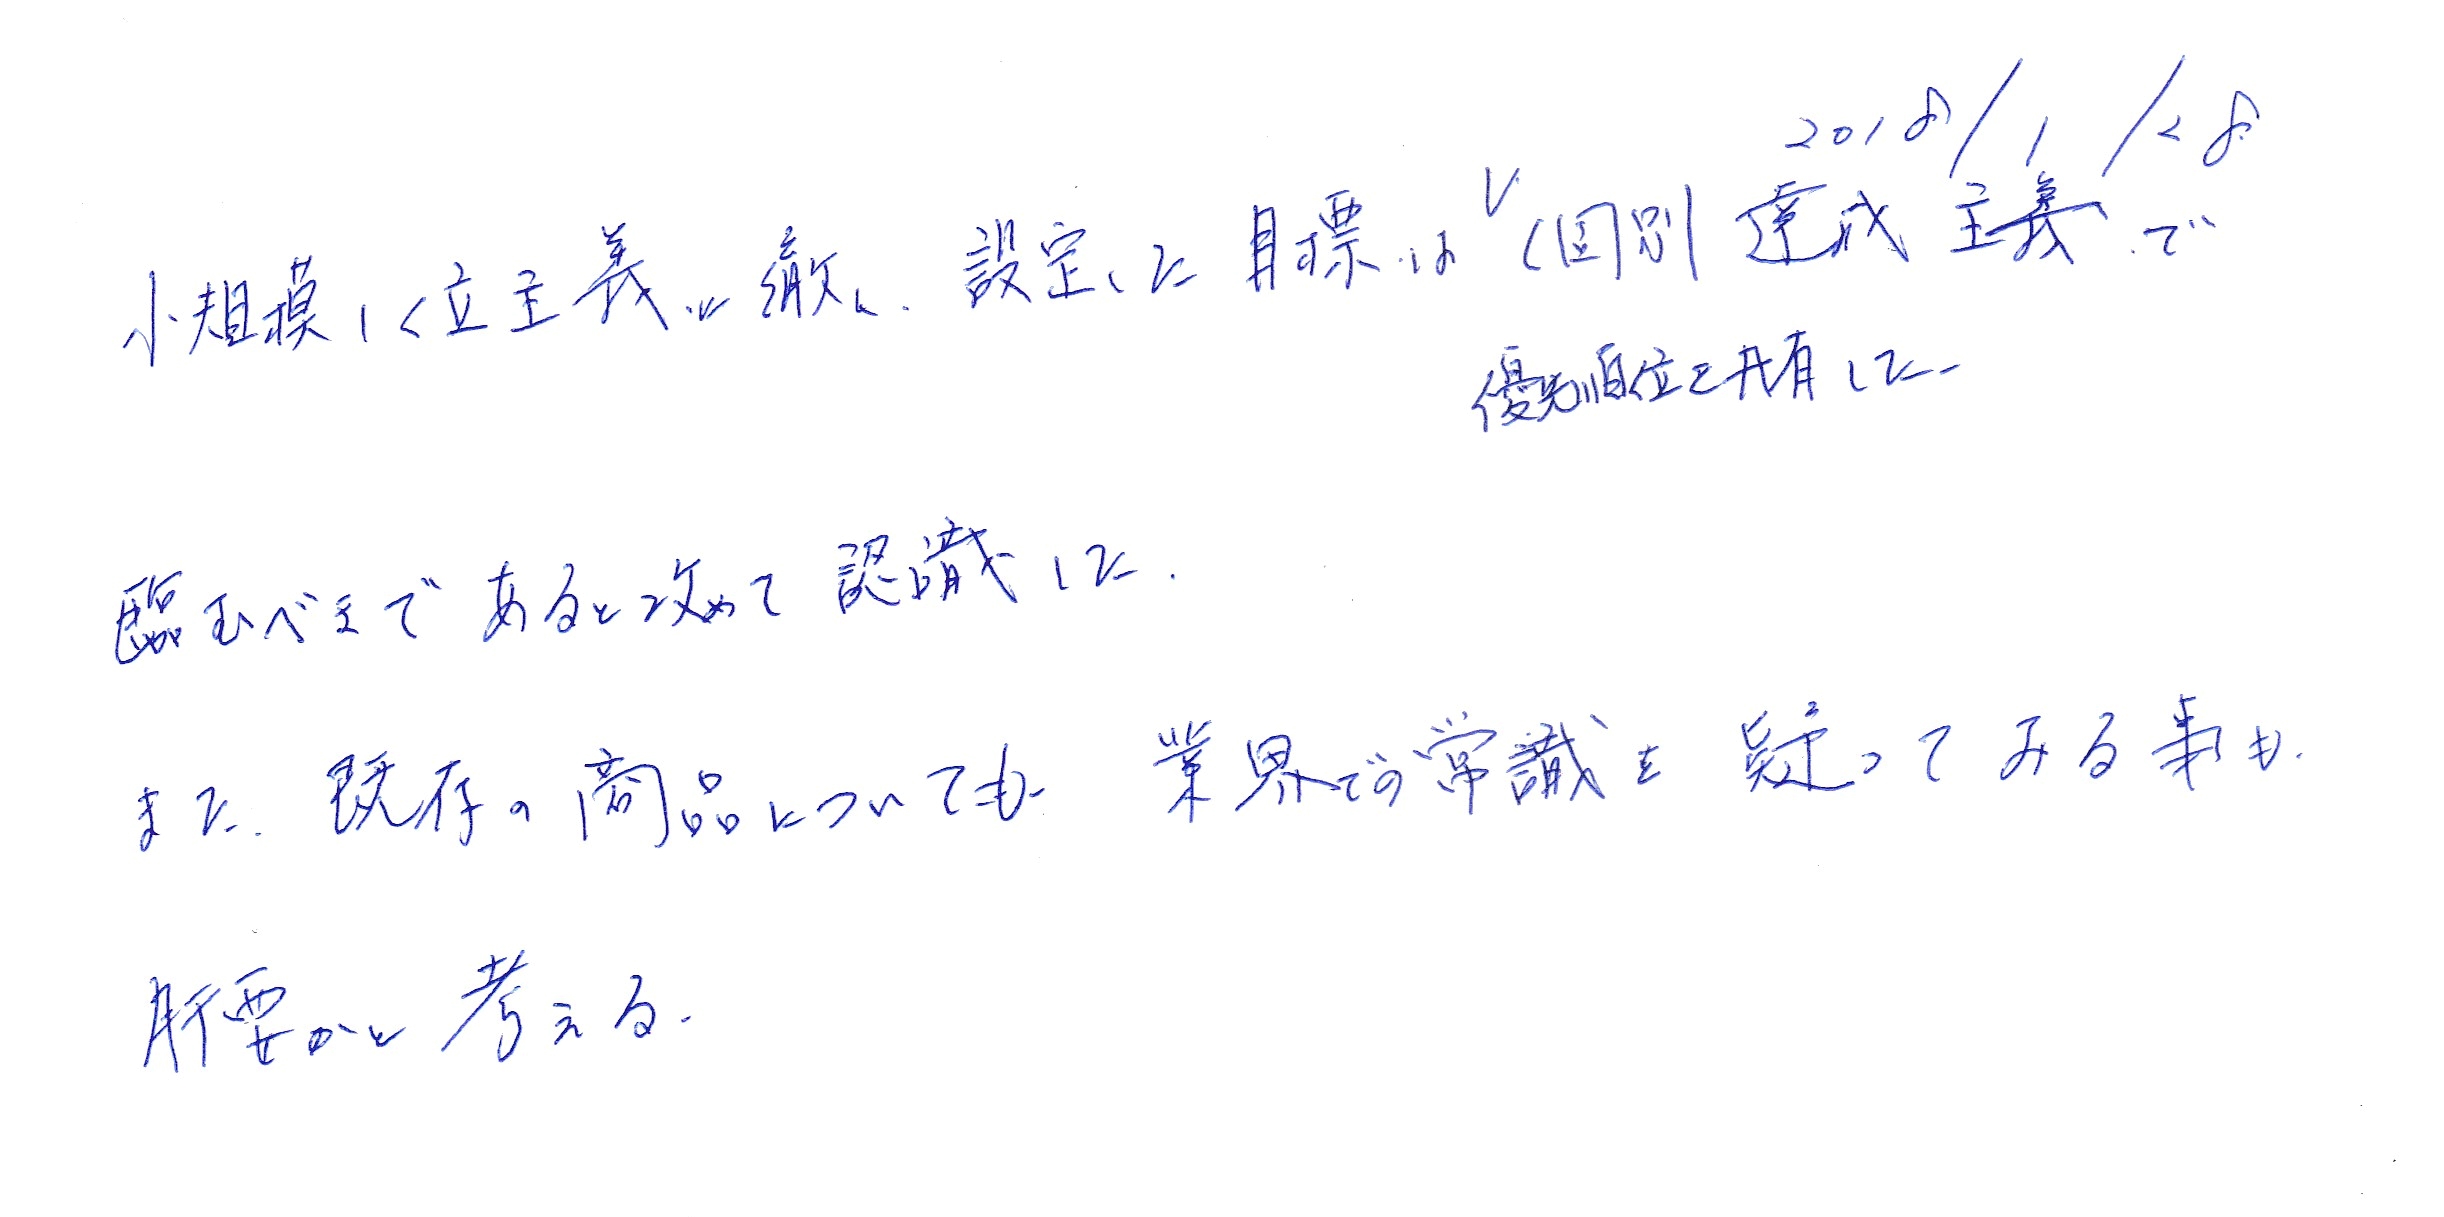 2018/1/28
小規模1位主義に徹し、設定した目標は 個別達成主義で
優先順位を共有した
臨むべきであると改めて認識した。
また、既存の商品についても、業界での常識を疑ってみる事も、
肝要かと考える。